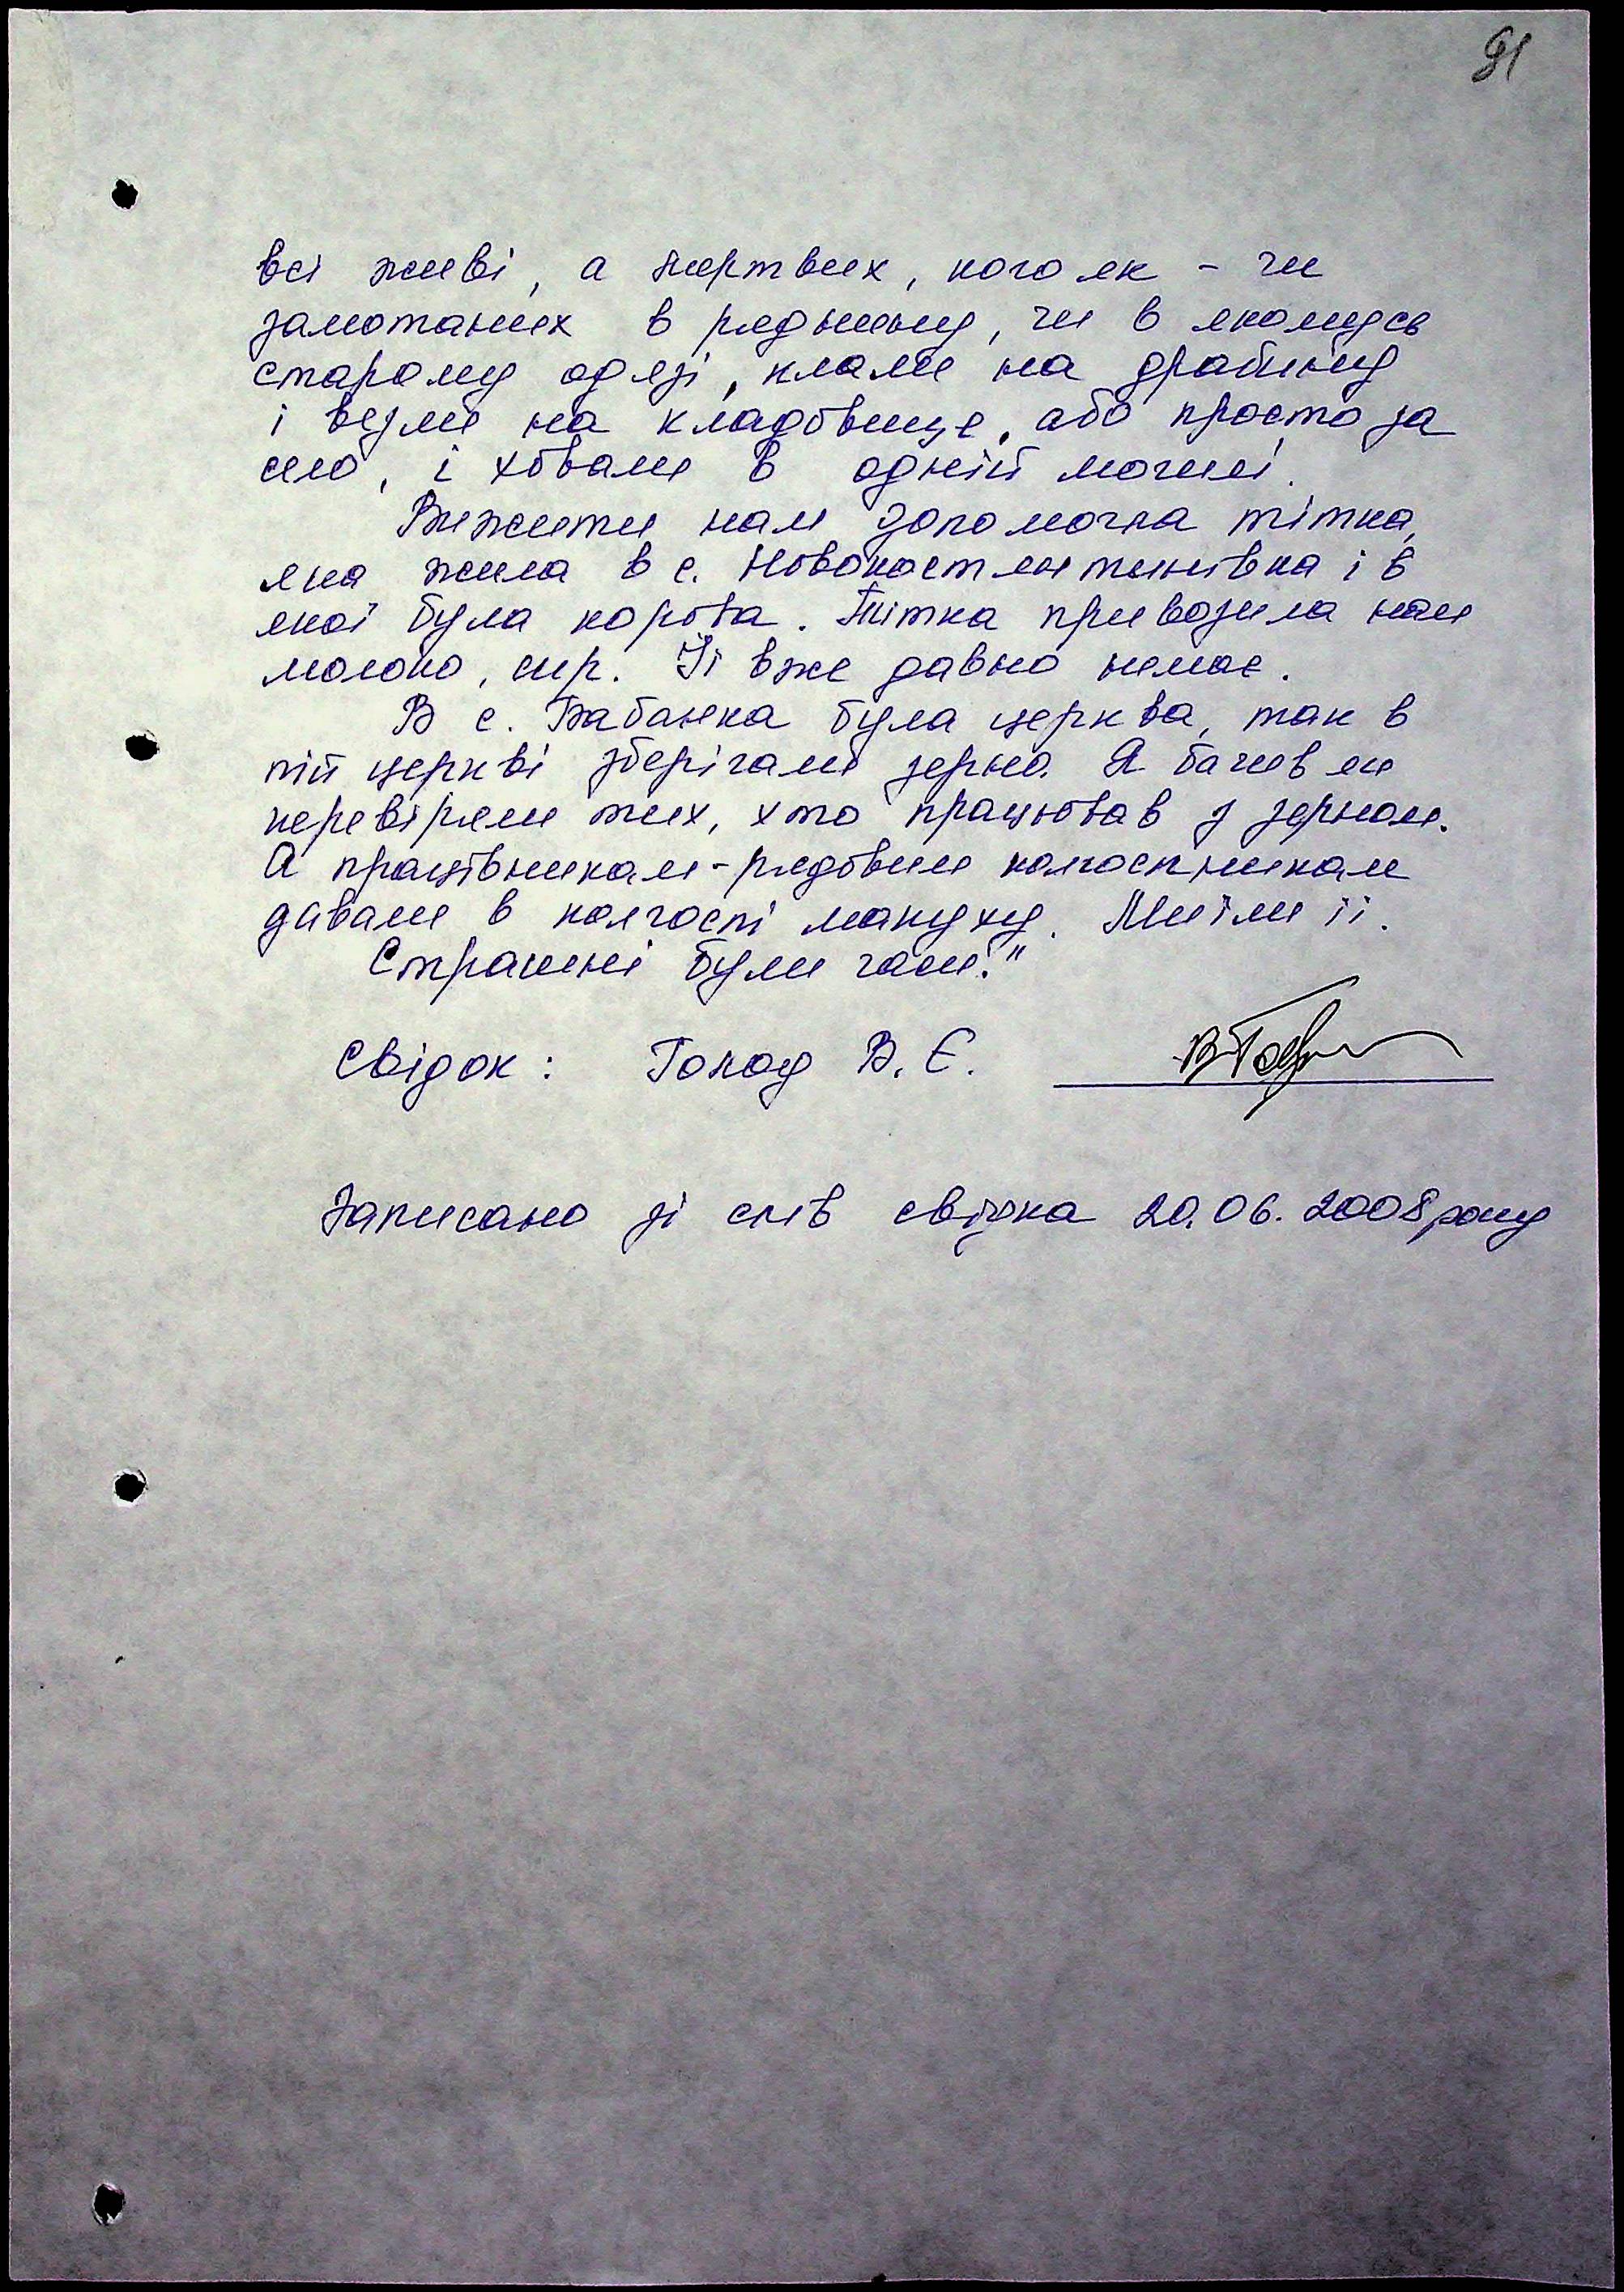 91
всі живі, а мертвих, кого як - чи
замотаних в ряднину, чи в якомусь
старому одязі, клали на драбину
і везли на кладовище, або просто за
село, і ховали в одній могилі.
Вижити нам допомогла тітка,
яка жила в с. Новокостянтинівка і в
якої була корова. Тітка привозила нам
молоко, сир. Її вже давно немає.
В с. Бабанка була церква, так в
тій церкві зберігали зерно. Я бачив як
перевіряли тих, хто працював з зерном.
А працівникам-рядовим колгоспникам
давали в колгоспі макуху. Ми їли її.
Страшні були часи."
Свідок: Голод В. Є.
Записано зі слів свідка 20.06.2008 року